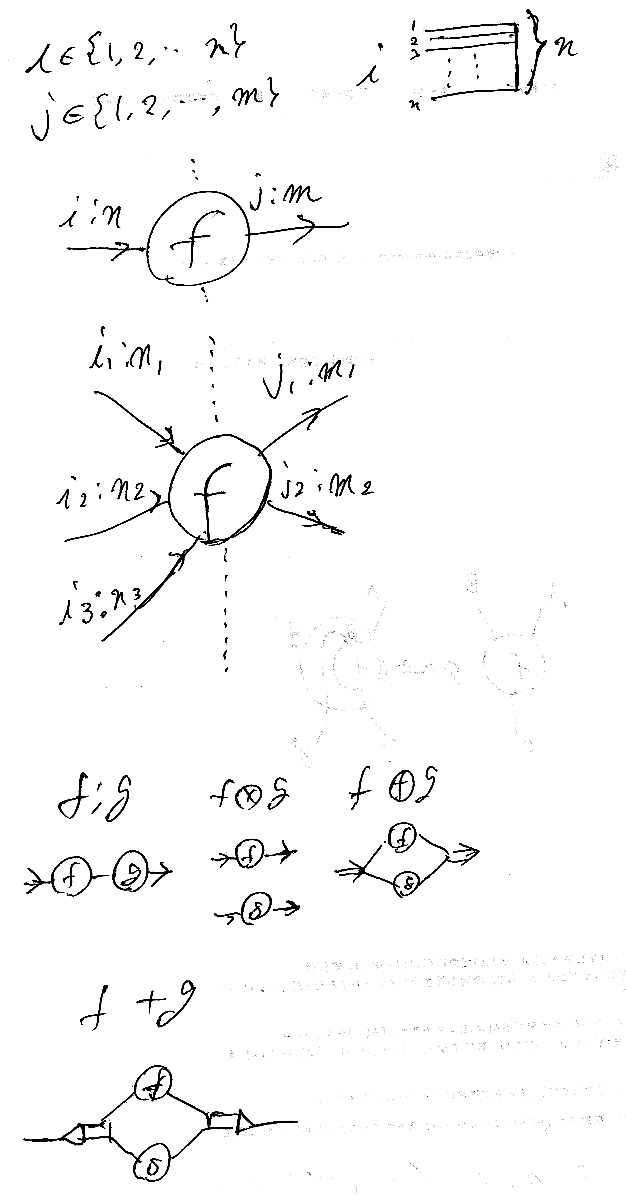 i ∈ {1, 2, ·· n}
1
2
3
i
n
n
j ∈ {1, 2, ···, m}
i : n
j : m
f
i₁ : n₁
j₁ : m₁
i₂ : n₂
f
j₂ : m₂
i₃ : n₃
f ; g
f ⊗ g
f ⊕ g
f
g
f
g
f
g
f + g
f
g